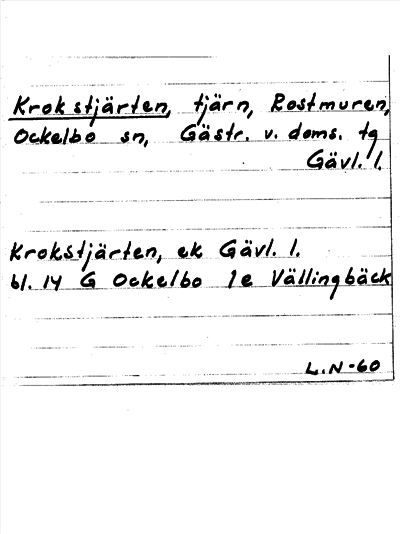 Krokstjärten, tjärn, Rostmuren,
Ockelbo sn, Gästr. v. doms. tg
Gävl. l.
Krokstjärten, ek Gävl. l.
bl. 14 G Ockelbo 1e Vällingbäck
L.N-60